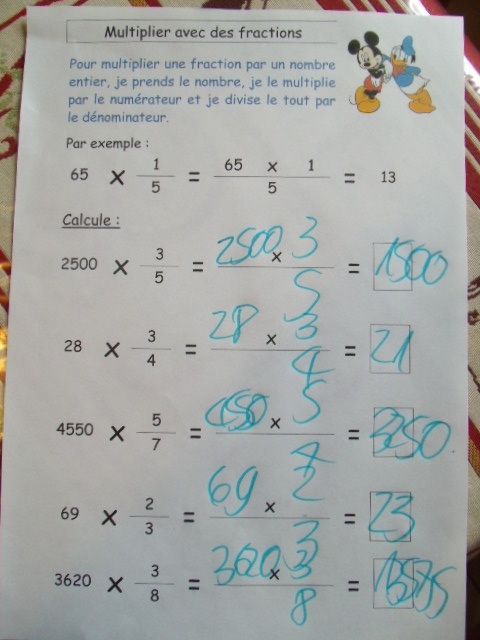 Multiplier avec des fractions
Pour multiplier une fraction par un nombre
entier, je prends le nombre, je le multiplie
par le numérateur et je divise le tout par
le dénominateur.
Par exemple :
65 × 1/5 = 65 × 1 / 5 = 13
Calcule :
2500 × 3/5 = 2500 × 3 / 5 = 1500
28 × 3/4 = 28 × 3 / 4 = 21
4550 × 5/7 = × 5 / 7 =
69 × 2/3 = 69 × 2 / 3 = 23
3620 × 3/8 = 3620 × 3 / 8 =